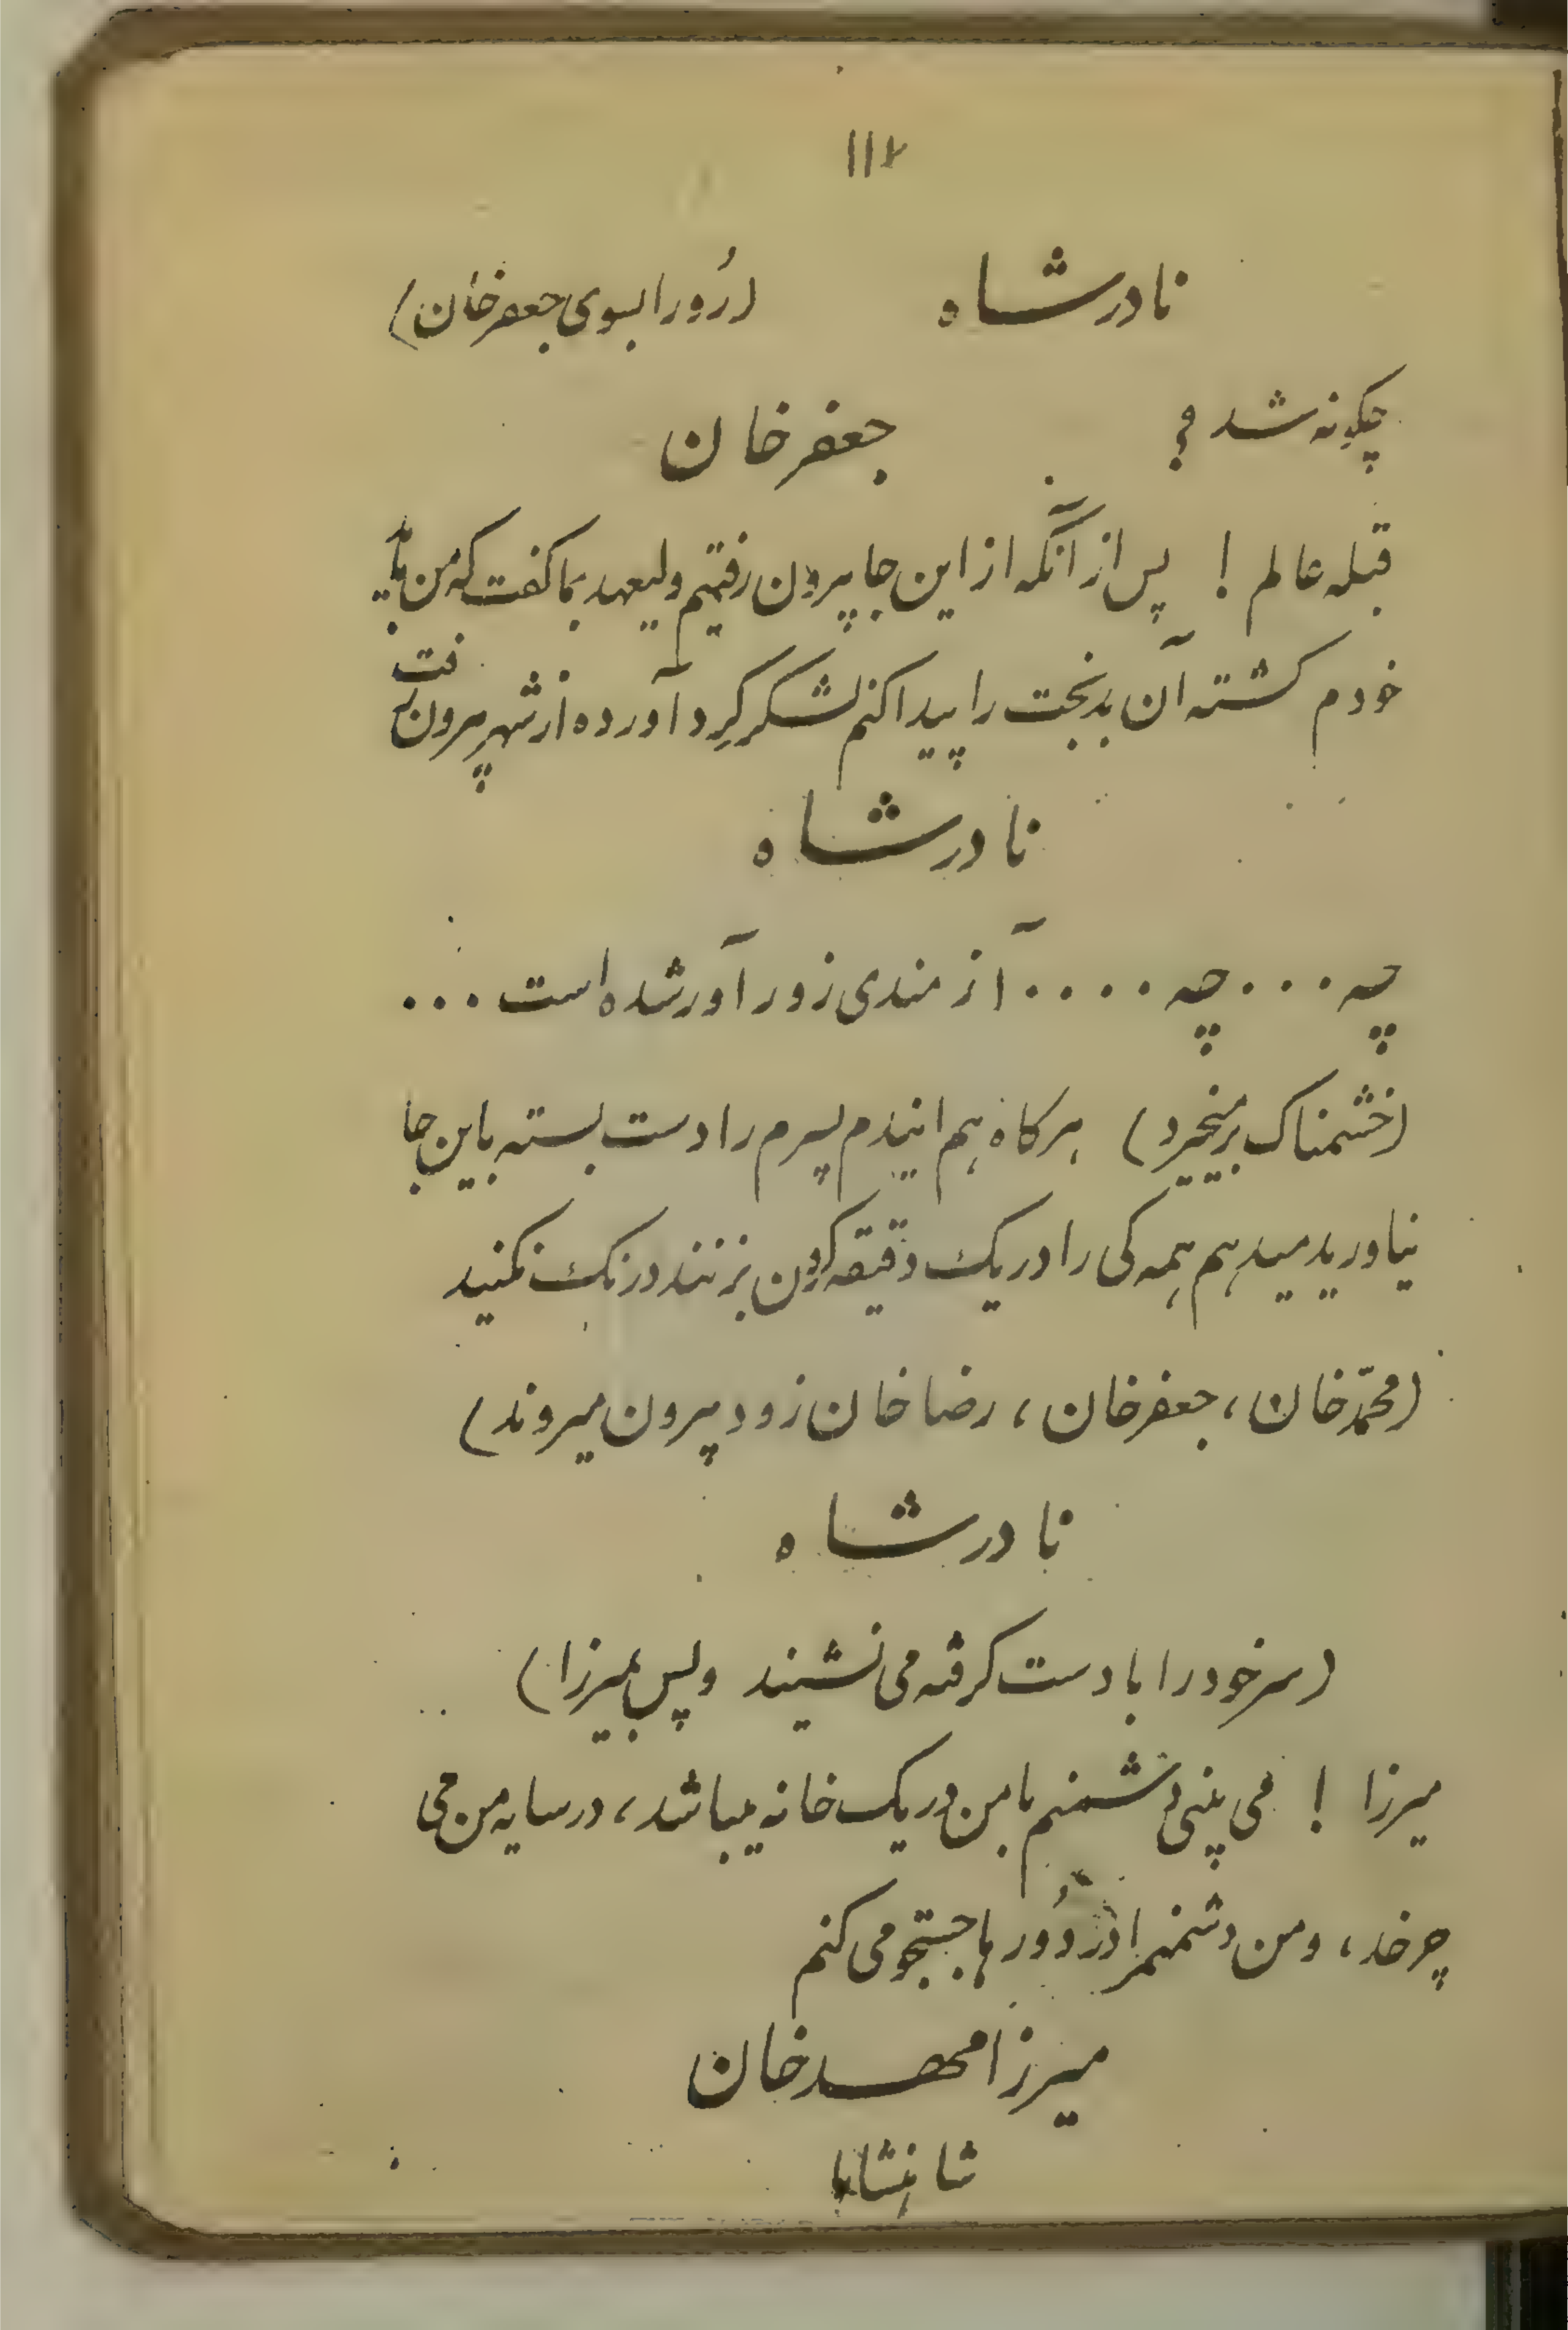 ۱۱۲
نادرشاه (رُو را بسوی جعفرخان)
چگونه شد؟
جعفرخان
قبله عالم ! پس از آنکه از این جا بیرون رفتیم ولیعهد بما گفت که من باید
خودم کشته آن بدبخت را پیدا کنم لشکر گِرد آورده از شهر بیرون رفت
نادرشاه
چه ... چه .... آزمندی زورآور شده است ...
(خشمناک برمیخیزد) هرگاه هم ایندم پسرم را دست بسته باین جا
نیاورید میدهم همه کی را در یک دقیقه گردن بزنند درنگ نکنید
(محمّدخان، جعفرخان، رضاخان زود بیرون میروند)
نادرشاه
(سر خود را با دست گرفته می نشیند و پس بمیرزا)
میرزا ! می بینی دشمنم با من در یک خانه میباشد، در سایه من می
چرخد، و من دشمنم را در دُورها جستجو می کنم
میرزا مهدخان
شاهنشاها